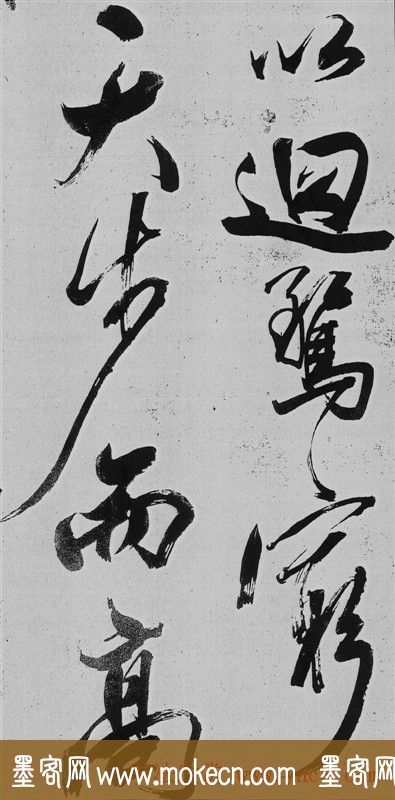 以迴騖窮
天步而高
墨客网 www.mokecn.com 墨客网